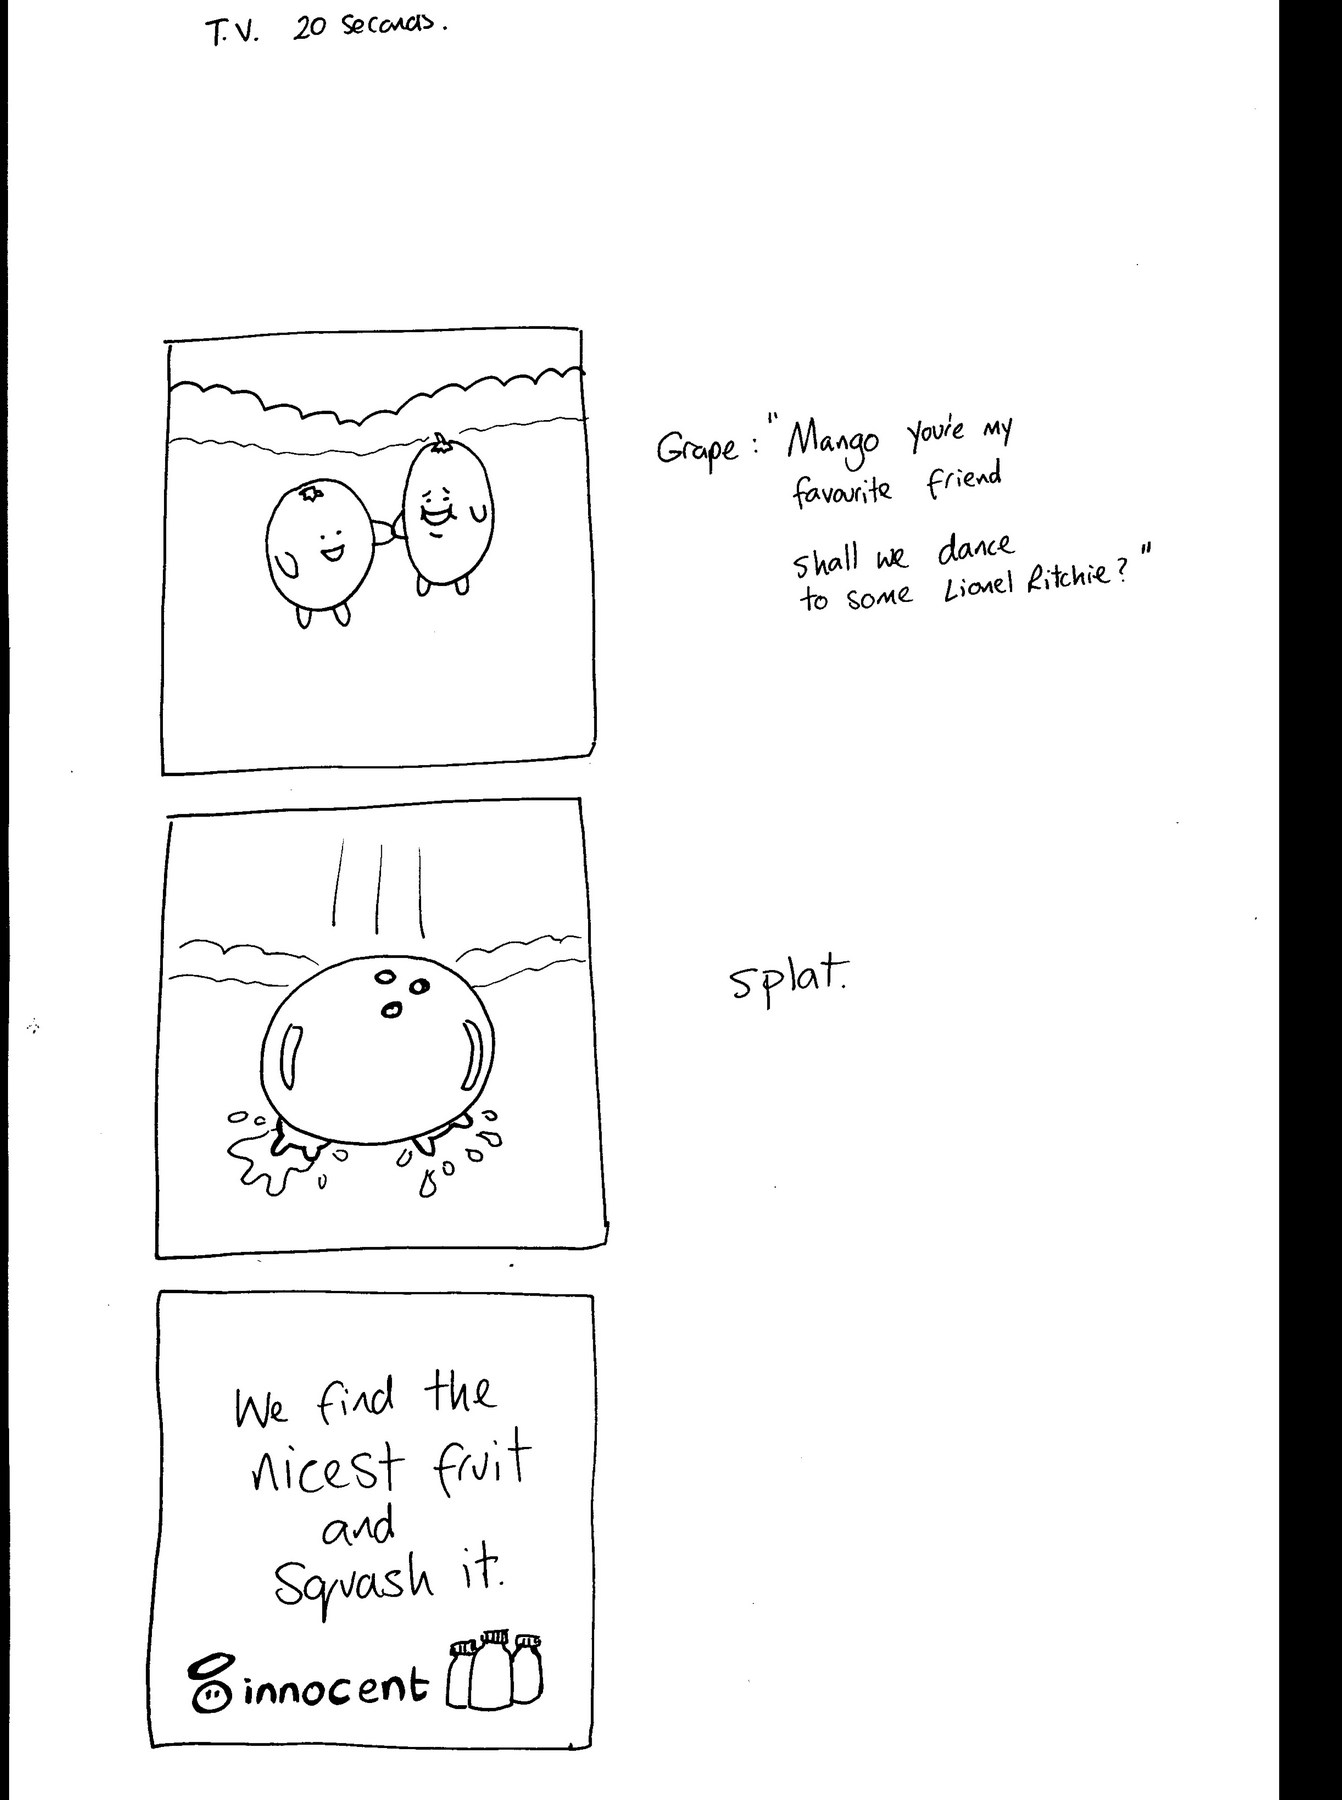 T.V. 20 seconds.
Grape: "Mango you're my
favourite friend
shall we dance
to some Lionel Ritchie?"
splat.
We find the
nicest fruit
and
Squash it.
innocent